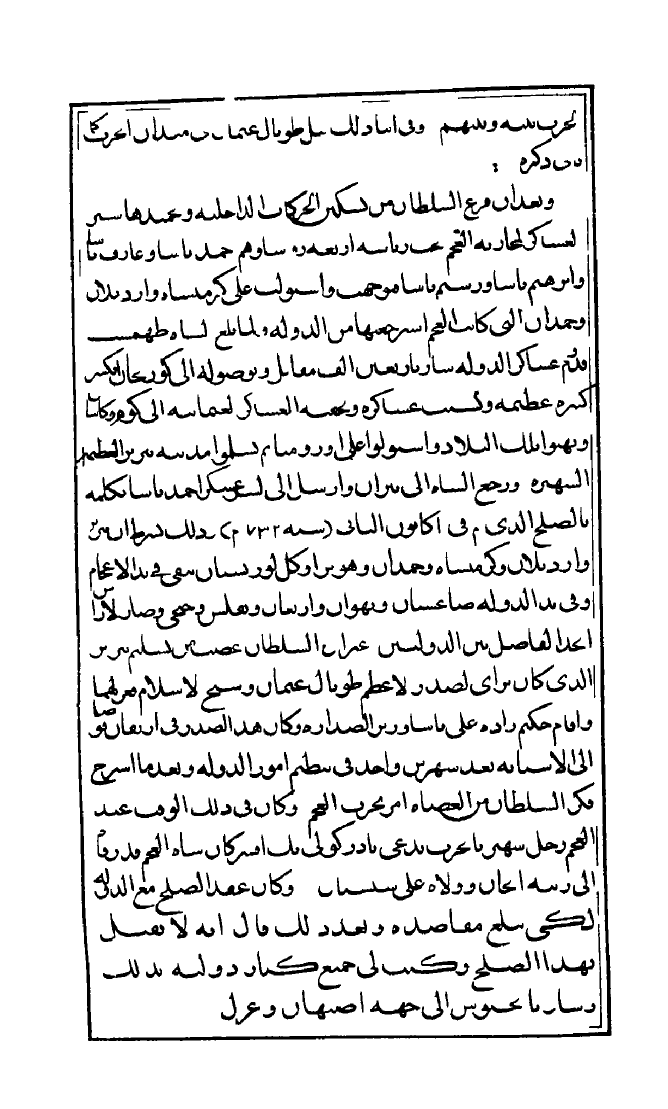 لحرب بينه وبينهم وفي اثنا ذلك قتل طوبال عثمان في ميدان الحرب كما
مر ذكره :
وبعد ان فرغ السلطان من تسكين الحركات الداخلية وتمهيدها سير
العساكر لمحاربة العجم تحت رياسة اربعة وهم احمد باشا وعارف باشا
وابرهيم باشا ورستم باشا واستولت على كرمنشاه واردبلان
وهمدان التي كانت العجم استرجعتها من الدولة ولما بلغ الشاه طهمسب
قدوم عساكر الدولة سار باربعين الف مقاتل وبوصوله الى كوريجان انكسر
كسرة عظيمة وتشتت عساكره وتبعته العساكر العثمانية الى
ونهبوا تلك البلاد واستولوا على اورومية ثم تسلموا مدينة تبريز العظيمة
الشهيرة ورجع الشاه الى وارسل الى السرعسكر احمد باشا بكلمه
بالصلح الذي تم في اكانون الثاني (سنة ١٧٣٢ م) وذلك بشرط ان تبريز
واردبلان وكرمنشاه وهمدان ولورستان تبقى في يد الاعجام
وفي يد الدولة داغستان ونخجوان واريوان وتفليس وصار الاراس
الحد الفاصل بين الدولتين غير ان السلطان غضب من تسليم تبريز
الذي كان براي الصدر الاعظم طوبال عثمان وشيخ الاسلام فعزلهما
واقام حكيم زاده علي باشا وزير الصدارة وكان هذا الصدر في
الى الاستانة بعد شهر واخذ في تنظيم امور الدولة وبعد ما استراح
فكر السلطان من العصاة امر بحرب العجم وكان في ذلك الوقت عند
العجم رجل شهير بالحرب يدعى نادر كولي بك كان شاه العجم قد رقاه
الى رتبة الخان وولاه على سيستان وكان عقد الصلح مع الدولة
لكي يبلغ مقاصده وبعد ذلك قال انه لا يقبل
بهذا الصلح وكتب الى جميع كبار دولته بذلك
وسار بالجيوش الى جهة اصبهان وعزل